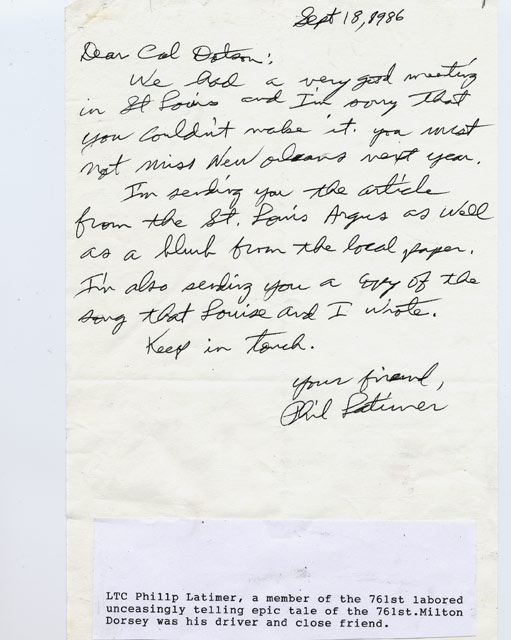 Sept 18, 1986
Dear Col Dotson:
We had a very good meeting
in St Louis and I'm sorry that
you couldn't make it. you must
not miss New Orleans next year.
I'm sending you the article
from the St. Louis Argus as well
as a blurb from the local paper.
I'm also sending you a copy of the
song that Louise and I wrote.
Keep in touch.
your friend,
Phil Latimer
LTC Phillp Latimer, a member of the 761st labored
unceasingly telling epic tale of the 761st.Milton
Dorsey was his driver and close friend.